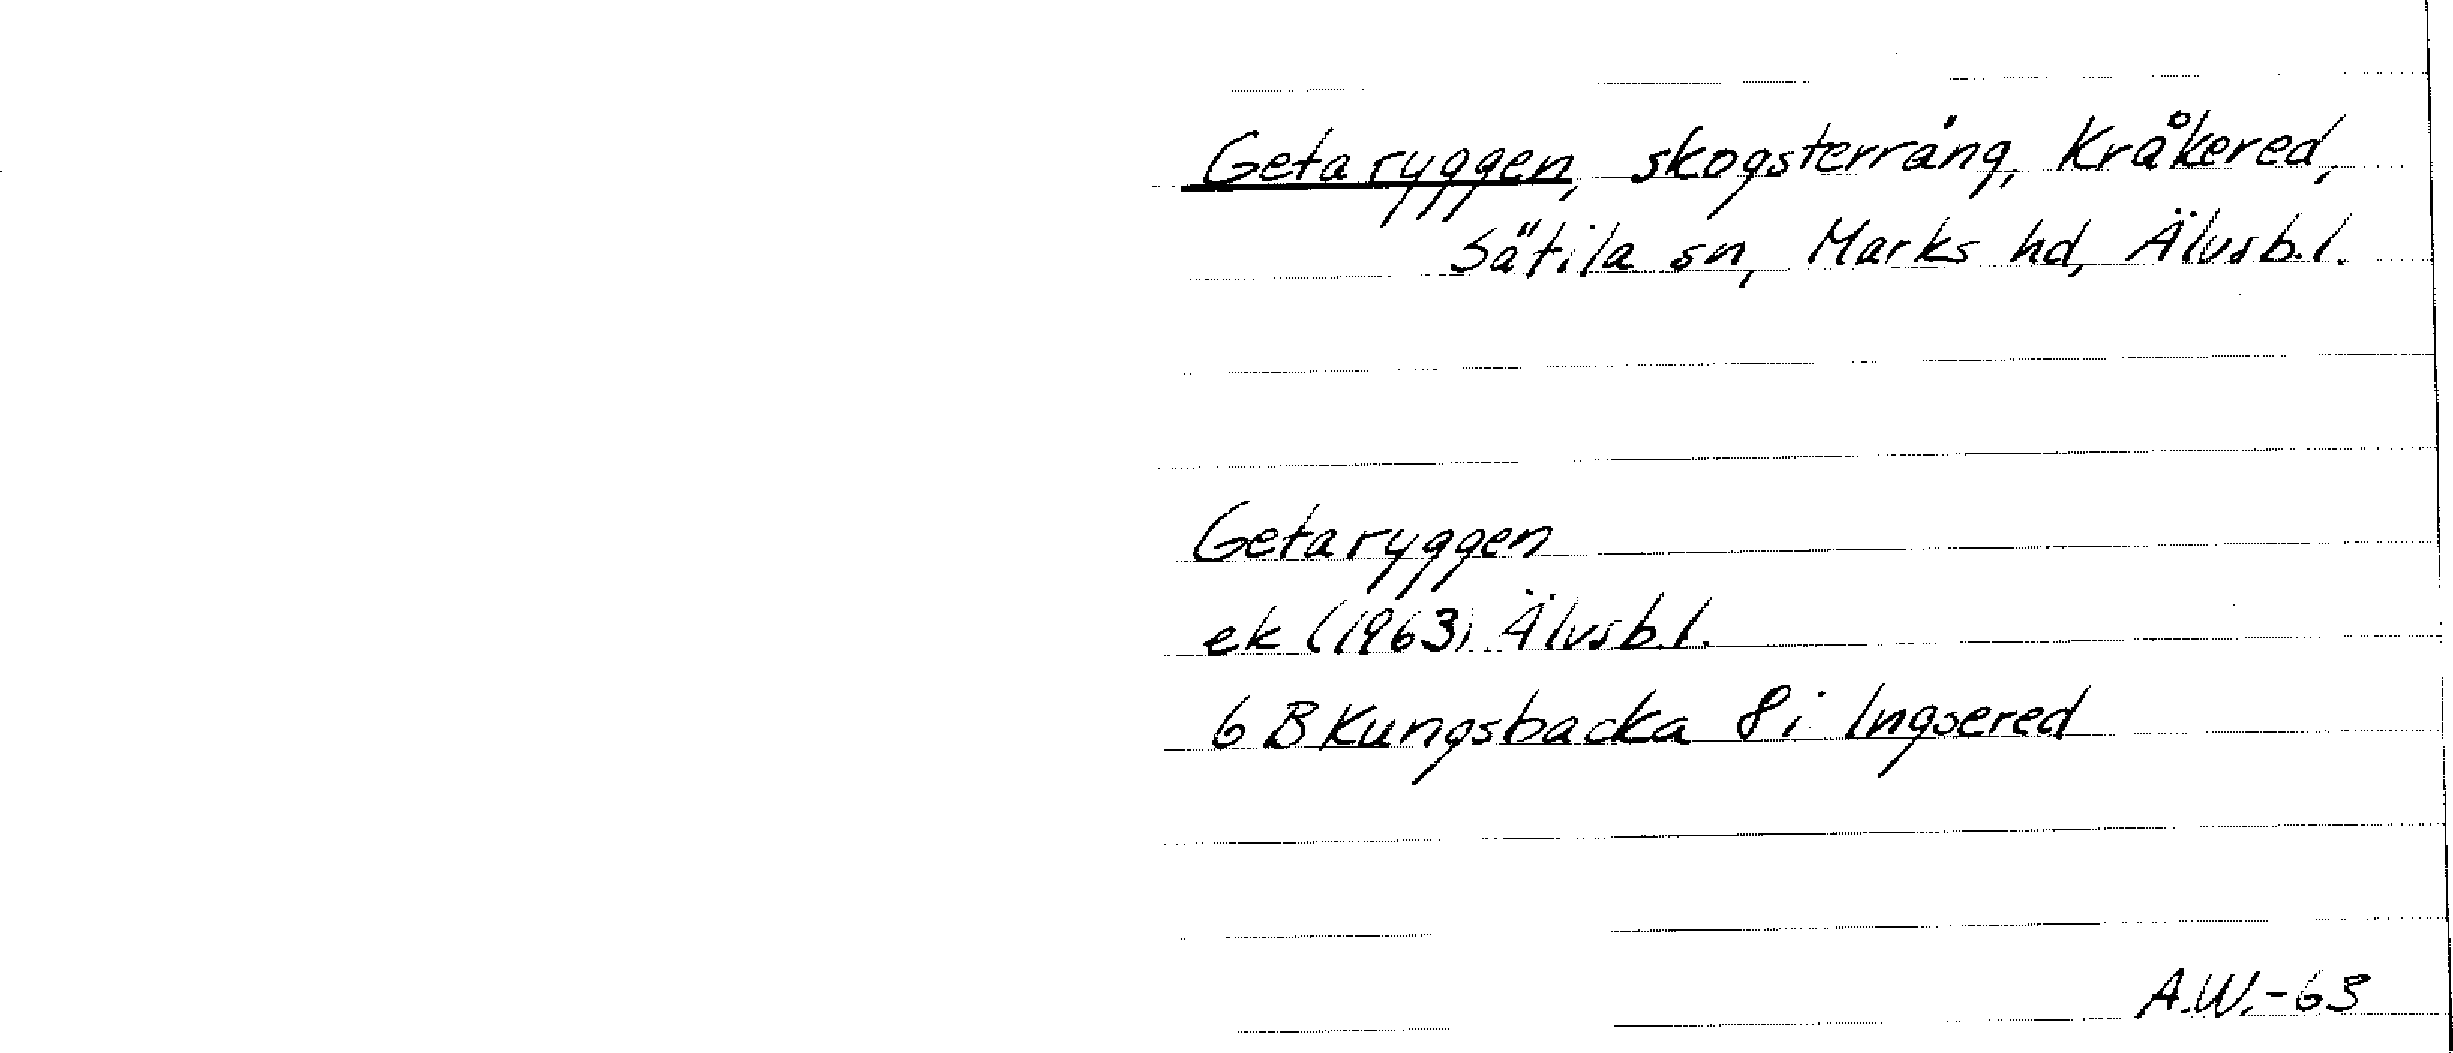 Getaryggen, skogsterräng, Kråkered,
Sätila sn, Marks hd, Älvsb.l.
Getaryggen
ek (1963) Älvsb.l.
6 B Kungsbacka 8 i Ingsered
A.W.-63